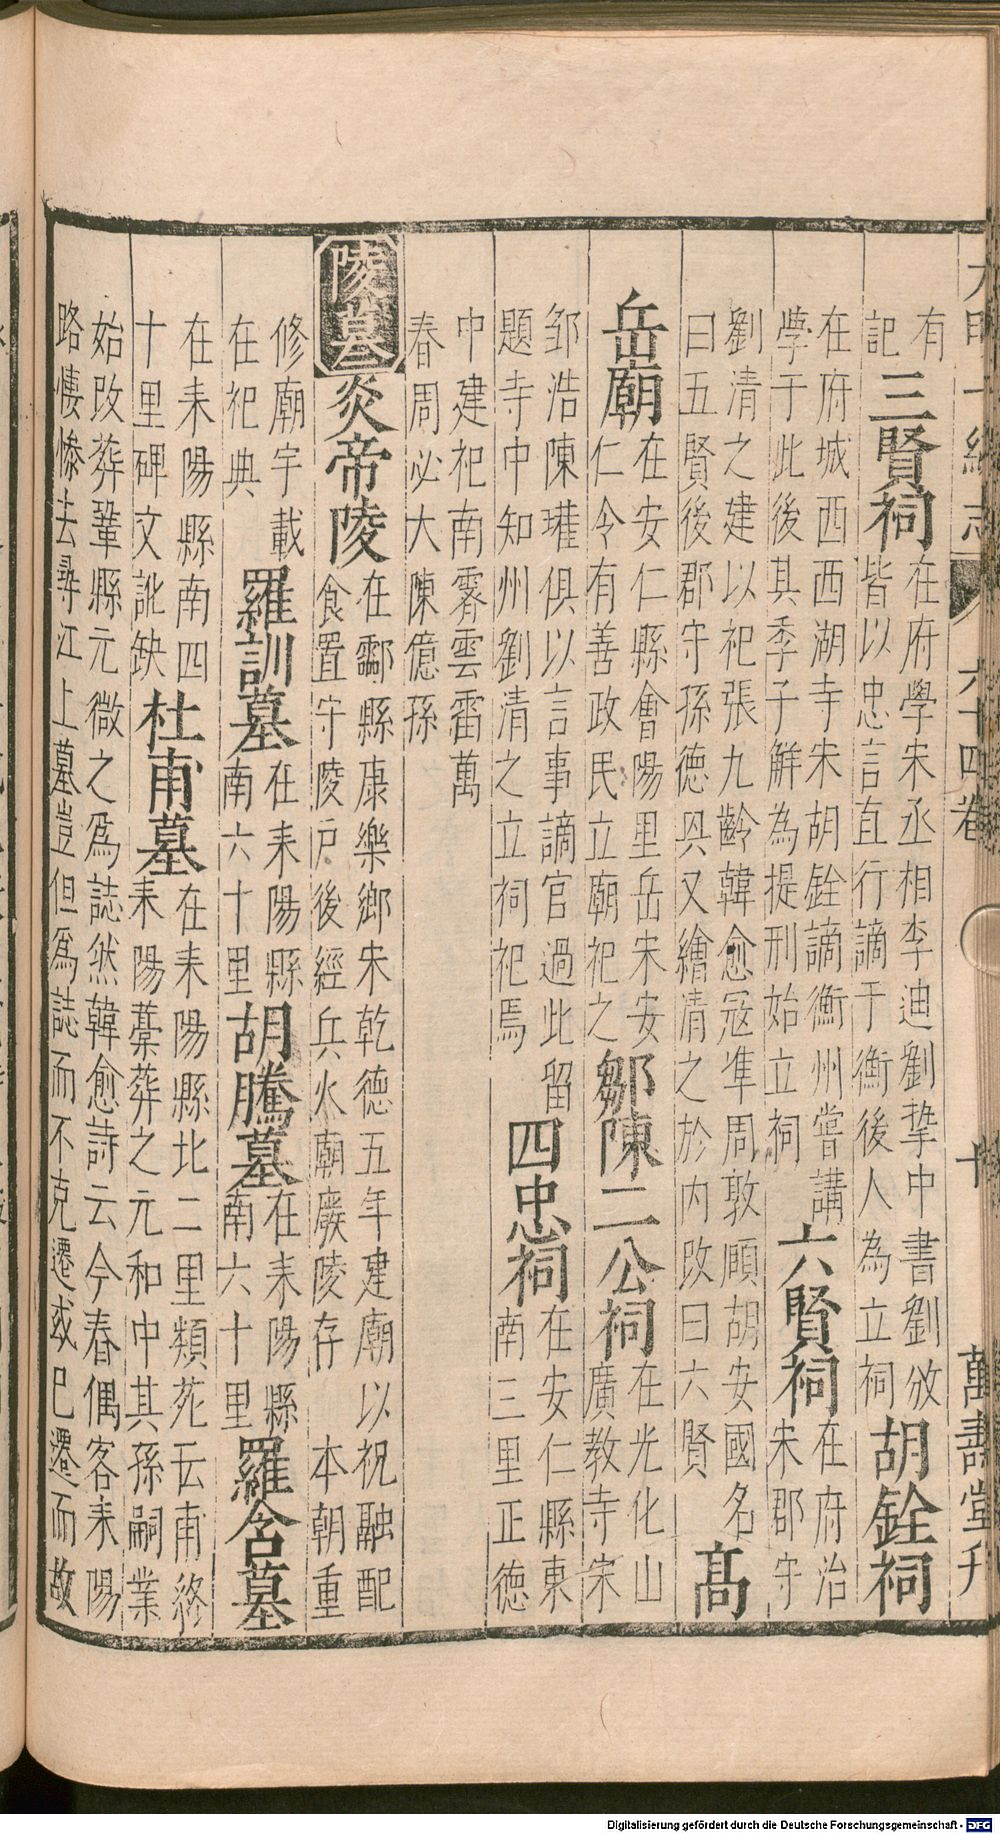 大明一統志 六十四卷 十 萬壽堂刋
有
記
三賢祠
在府學宋丞相李迪劉摯中書劉攽
皆以忠言直行謫于衡後人為立祠
胡銓祠
在府城西西湖寺宋胡銓謫衡州嘗講
學于此後其季子解為提刑始立祠
六賢祠
在府治
宋郡守
劉清之建以祀張九齡韓愈寇準周敦頤胡安國名
曰五賢後郡守孫德與又繪清之於内改曰六賢
髙
岳廟
在安仁縣會陽里岳宋安
仁令有善政民立廟祀之
鄒陳二公祠
在光化山
廣教寺宋
鄒浩陳瓘俱以言事謫官過此留
題寺中知州劉清之立祠祀焉
四忠祠
在安仁縣東
南三里正德
中建祀南霽雲雷萬
春周必大陳億孫
陵墓
炎帝陵
在酃縣康樂鄉宋乾德五年建廟以祝融配
食置守陵户後經兵火廟廢陵存 本朝重
修廟宇載
在祀典
羅訓墓
在耒陽縣
南六十里
胡騰墓
在耒陽縣
南六十里
羅含墓
在耒陽縣南四
十里碑文訛缺
杜甫墓
在耒陽縣北二里類苑云甫終
耒陽藁葬之元和中其孫嗣業
始改葬鞏縣元微之為誌然韓愈詩云今春偶客耒陽
路悽慘去尋江上墓豈但為誌而不克遷或已遷而故
Digitalisierung gefördert durch die Deutsche Forschungsgemeinschaft - DFG